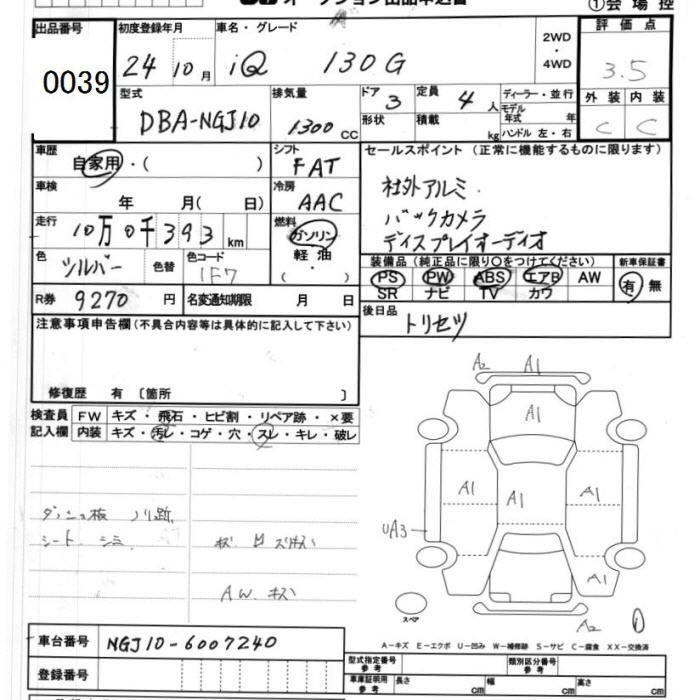 ①会場控
出品番号 初度登録年月 車名・グレード 2WD・4WD 評価点
0039 24 10月 iQ 130G 3.5
型式 排気量 ドア 3 定員 4人 ディーラー・並行 外装 内装
DBA-NGJ10 1300cc 形状 積載 kg モデル年式 年 C C
ハンドル 左・右
車歴 シフト セールスポイント (正常に機能するものに限ります)
自家用・( ) FAT
車検 冷房 社外アルミ.
年 月( 日) AAC バックカメラ
走行 燃料 ディスプレイオーディオ
10万0千393km ガソリン
軽油
・( )
色 シルバー 色替 色コード 1F7
装備品 (純正品に限り○をつけてください) 新車保証書
PS PW ABS エアB AW 有 無
SR ナビ TV カワ
R券 9270円 名変通知期限 月 日
後日品 トリセツ
注意事項申告欄(不具合内容等は具体的に記入して下さい)
修復歴 有 〔箇所 〕
検査員 FW キズ・飛石・ヒビ割・リペア跡・×要
記入欄 内装 キズ・汚レ・コゲ・穴・スレ・キレ・破レ
A2 A1
A1
A1 A1 A1
UA3
A1
ダッシュ板 ノリ跡
シート シミ
AW. キズ
スペア
A2
①
A-キズ E-エクボ U-凹み W-補修跡 S-サビ C-腐食 XX-交換済
車台番号 NGJ10-6007240
登録番号
型式指定番号 参考 類別区分番号 参考
車庫証明用 参考 長さ cm 幅 cm 高さ cm